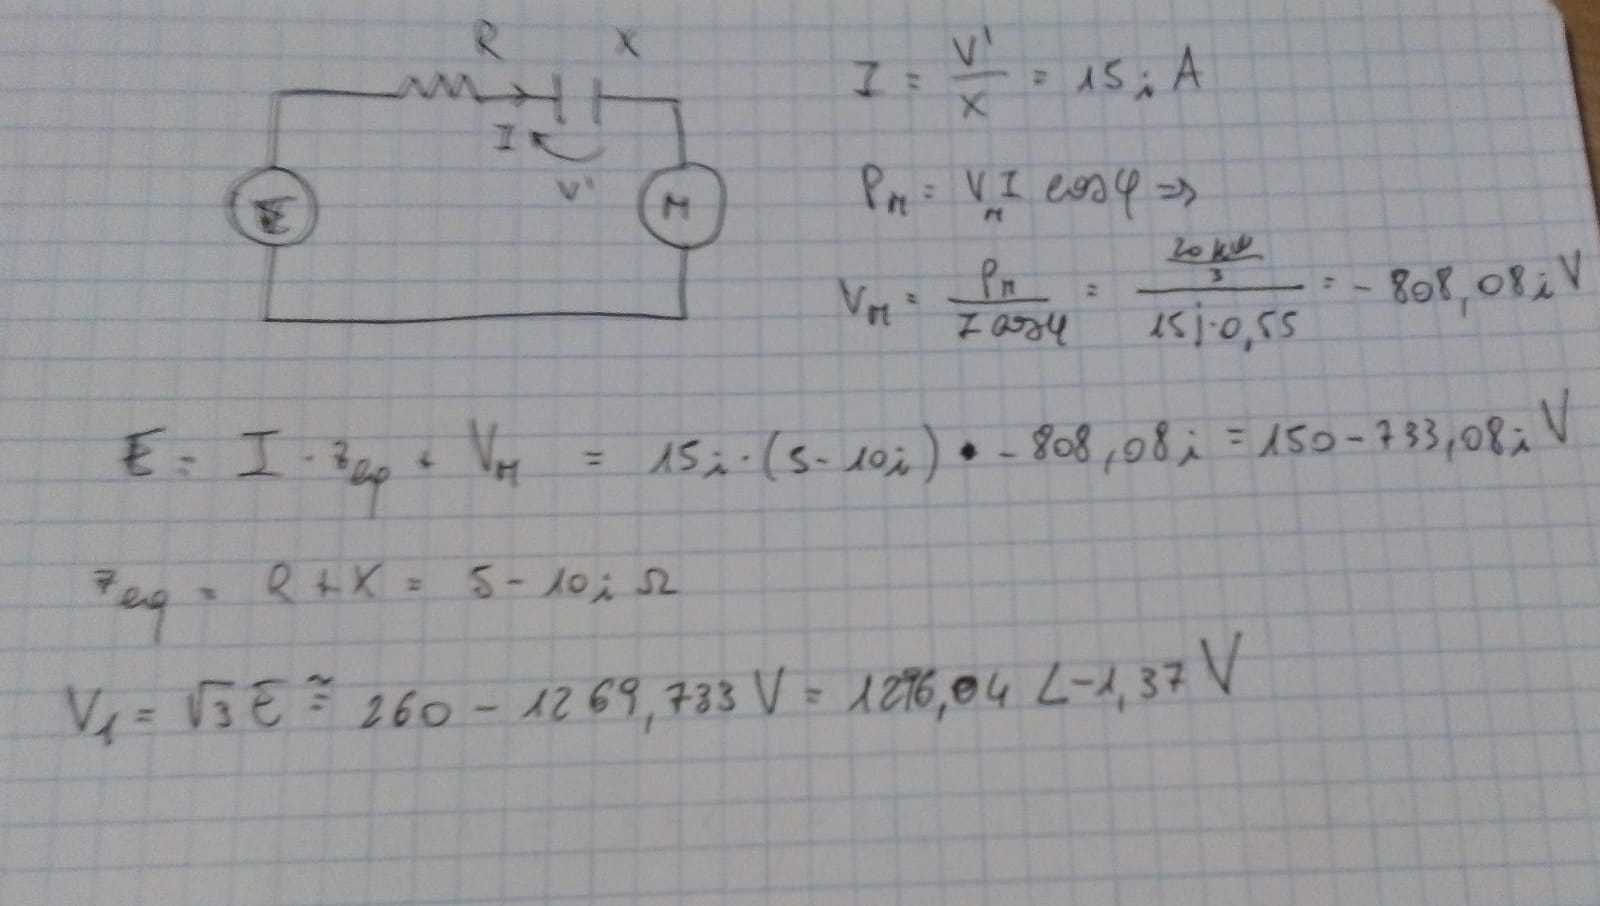 R X
I
V'
E
M
I = V'/X = 15i A
P_M = V_M I cosφ ⇒
V_M = P_M/(I cosφ) = (20 kW/3)/(15j·0,55) = -808,08i V
E = I · z_eq + V_M = 15i·(5-10i) • -808,08i = 150-733,08i V
z_eq = R+X = 5-10i Ω
V_1 = √3 E ≅ 260 - 1269,733 V = 1296,04 ∠-1,37 V